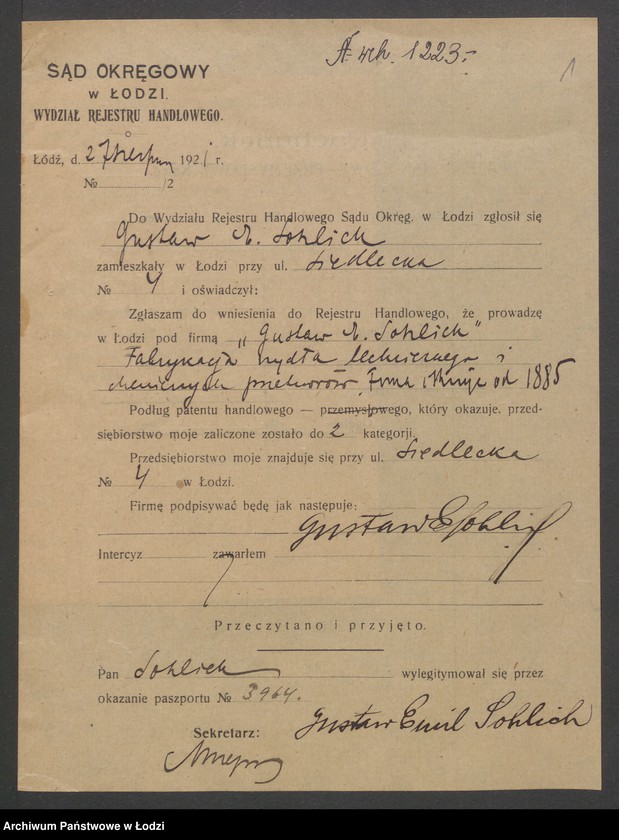 A. rch. 1223.-
1
SĄD OKRĘGOWY
w ŁODZI.
WYDZIAŁ REJESTRU HANDLOWEGO.
Łódź, d. 27 sierpnia 1921 r.
№ /2
Do Wydziału Rejestru Handlowego Sądu Okręg. w Łodzi zgłosił się
Gustaw E. Sohlich
zamieszkały w Łodzi przy ul. Siedlecka
№ 4 i oświadczył:
Zgłaszam do wniesienia do Rejestru Handlowego, że prowadzę
w Łodzi pod firmą „Gustaw E. Sohlich"
Fabrykacja mydła technicznego i
chemicznych przetworów. Firma istnieje od 1885
Podług patentu handlowego — przemysłowego, który okazuje, przed-
siębiorstwo moje zaliczone zostało do 2 kategorji.
Przedsiębiorstwo moje znajduje się przy ul. Siedlecka
№ 4 w Łodzi.
Firmę podpisywać będę jak następuje:
Gustaw E Sohlich
Intercyz zawarłem
Przeczytano i przyjęto.
Pan Sohlich wylegitymował się przez
okazanie paszportu № 3964.
Gustaw Emil Sohlich
Sekretarz:
Archiwum Państwowe w Łodzi